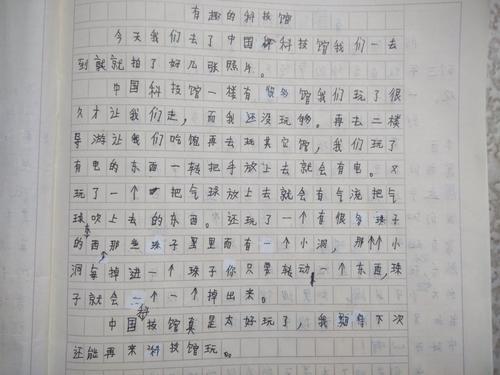 有趣的科技馆
今天我们去了中国科科技馆我们一去
到就就拍了好几张照片。
中国科技馆一楼有很多馆我们玩了很
久才让我们走，而我还没玩够。再去二楼
导游让我们吃饱再去玩其它馆，我们玩了
有电的东西一转把手放上去就会有电。又
玩了一个把气球放上去就会有气流把气
球吹上去的东西。还玩了一个有很多珠子
的东西那些珠子里里面有一个小洞，那个小
洞每掉进一个珠子你只要转动一个东西，珠
子就会一个一个掉出来。
中国科技馆真是太好玩了，我期待下次
还能再来科技馆玩。